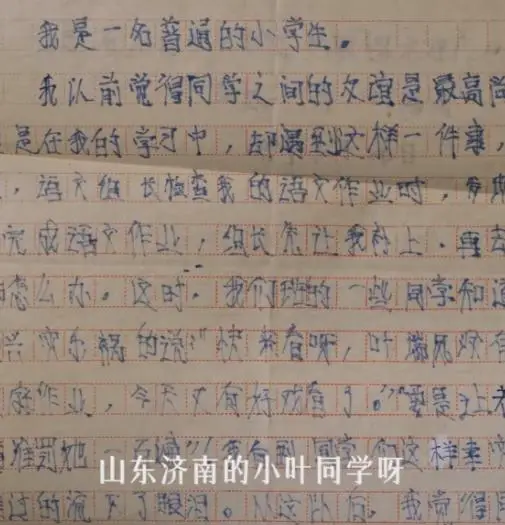 我是一名普通的小学生。
我认前觉得同学之间的友谊是最高尚
是在我的学习中，却遇到这样一件事，
，语文组长检查我的语文作业时，
完成语文作业，组长先让我补上。再去
怎么办。这时。我们班的一些同学知道
兴灾乐祸的说"快来看呀，叶 没有
家作业，今天又有好戏看了。"要是让老
罚她一 看到同学们这样幸灾
山东济南的小叶同学呀
过的流下了眼泪。从这以后。我觉得同